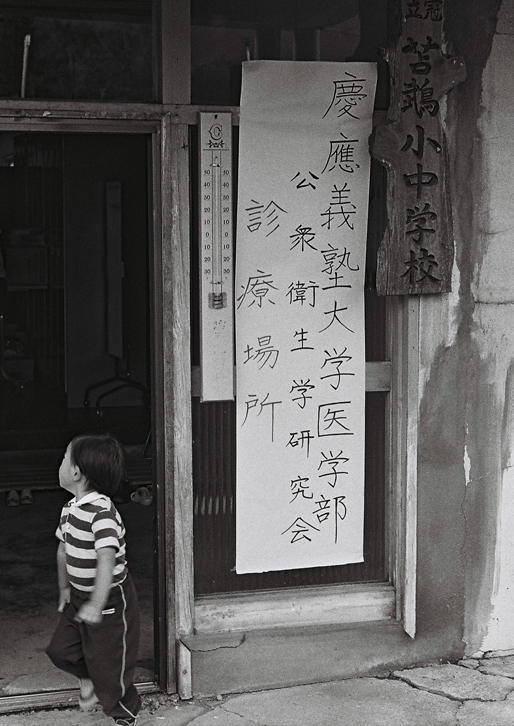 立苫鵡小中学校
慶應義塾大学医学部
公衆衛生学研究会
診療場所
50 50
40 40
30 30
20 20
10 10
0 0
10 10
20 20
30 30